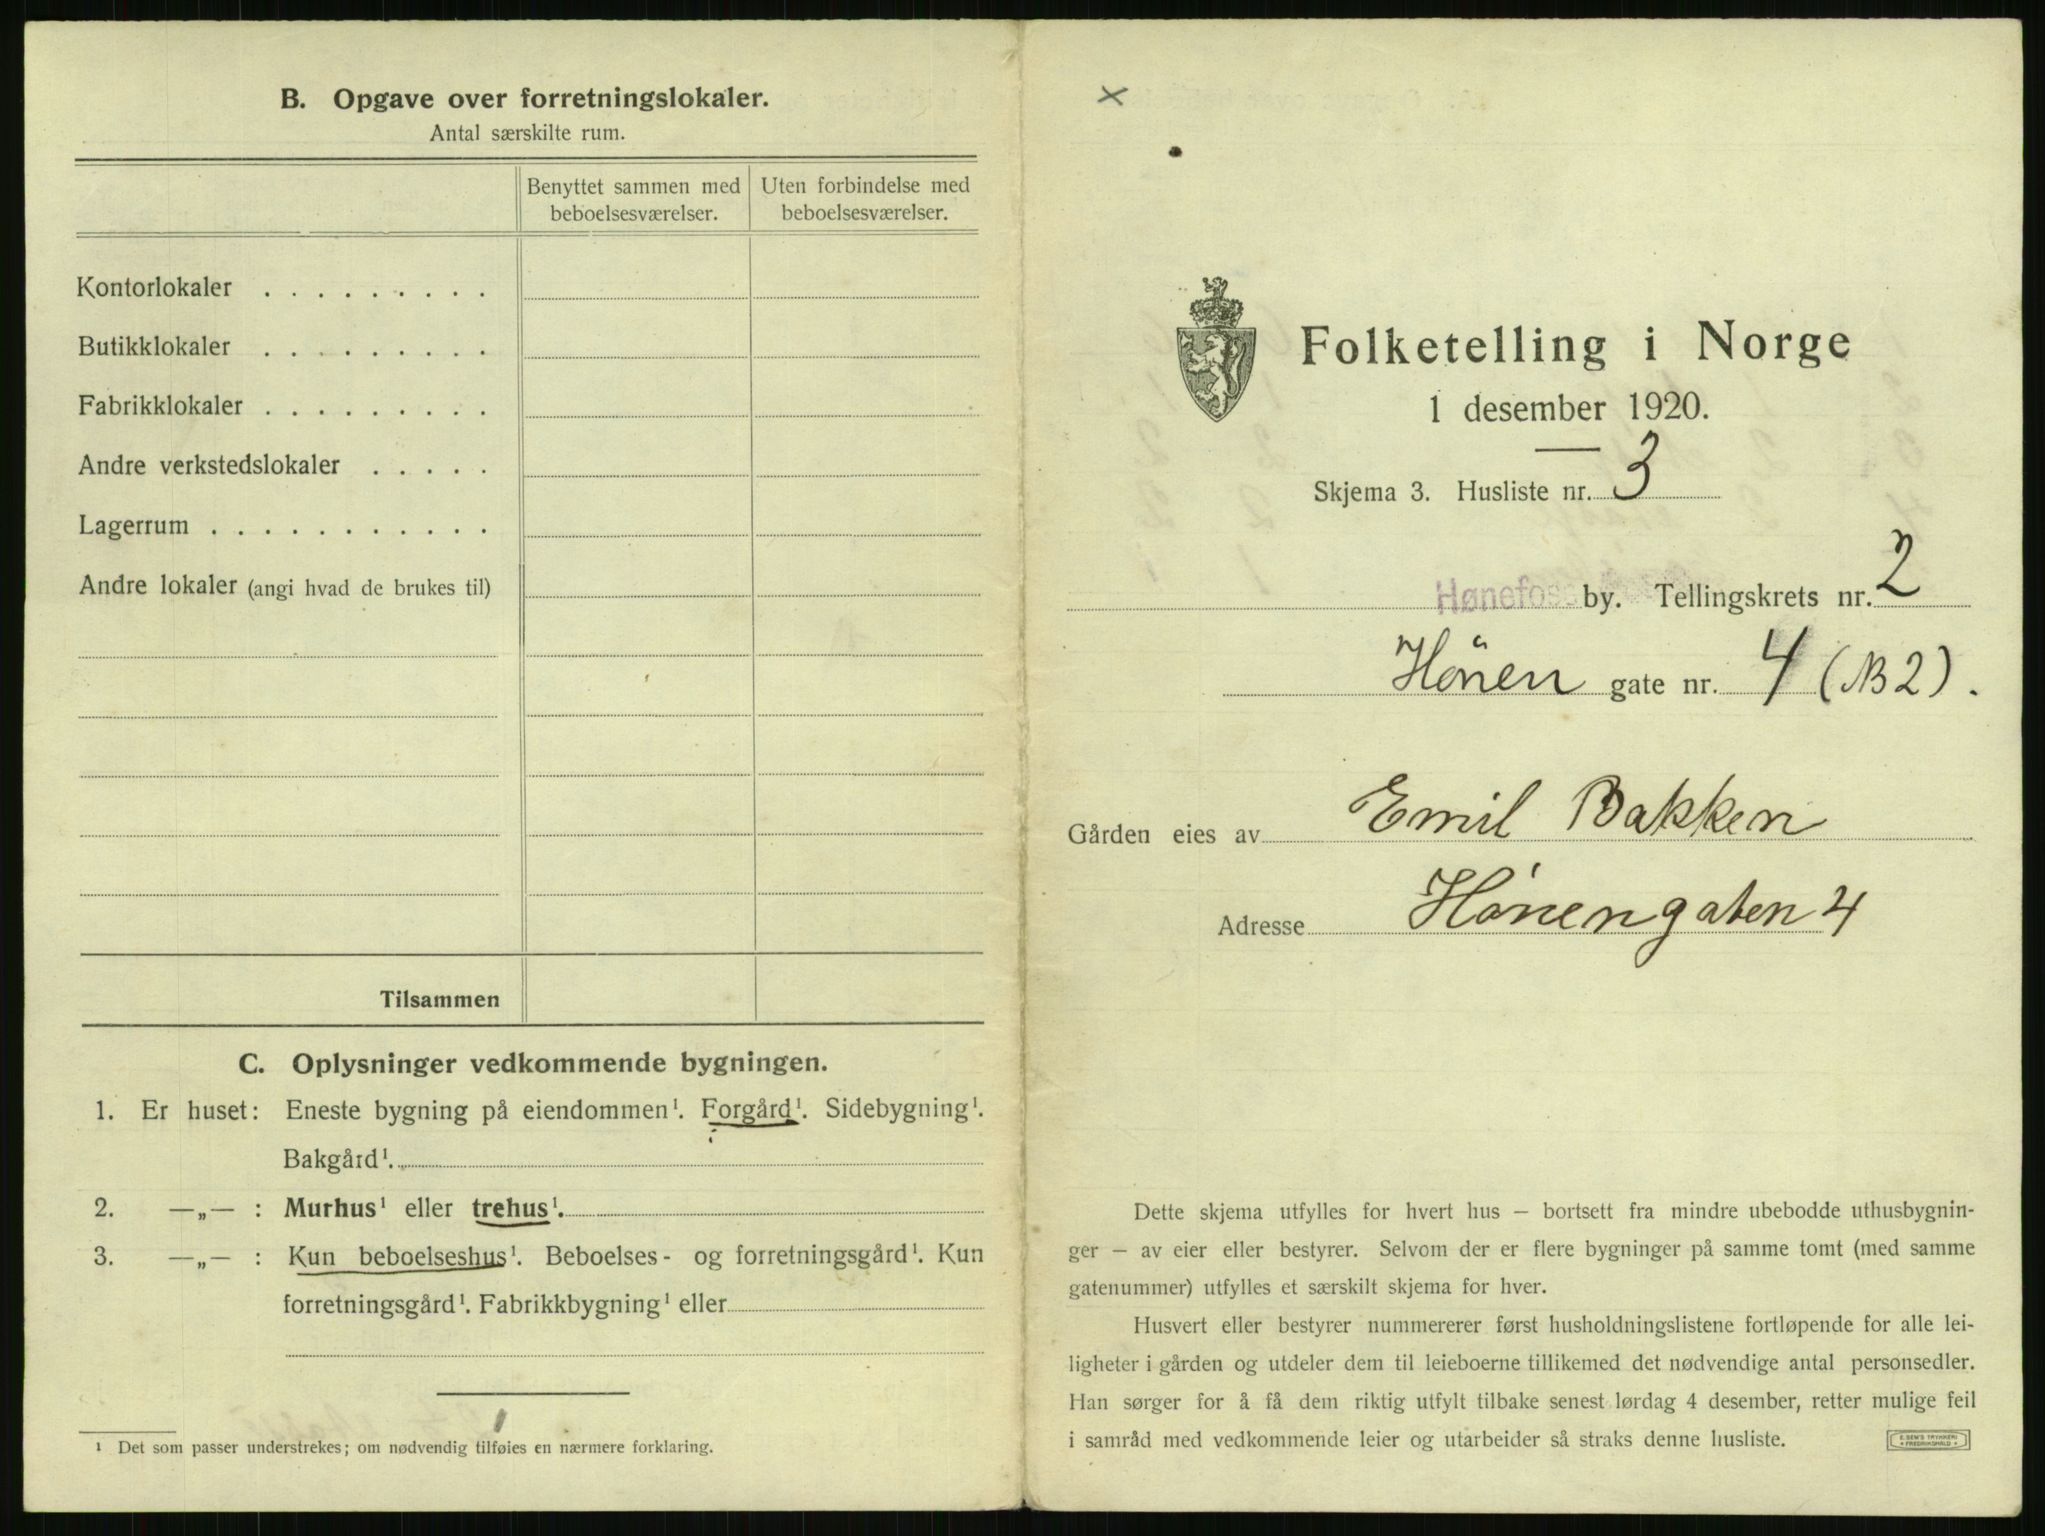 B. Opgave over forretningslokaler.
Antal særskilte rum.
Benyttet sammen med beboelsesværelser.
Uten forbindelse med beboelsesværelser.
Kontorlokaler . . . . . . . . .
Butikklokaler . . . . . . . . .
Fabrikklokaler . . . . . . . . .
Andre verkstedslokaler . . . . .
Lagerrum . . . . . . . . . . .
Andre lokaler (angi hvad de brukes til)
Tilsammen
C. Oplysninger vedkommende bygningen.
1. Er huset: Eneste bygning på eiendommen¹. Forgård¹. Sidebygning¹.
Bakgård¹.
2. —„— : Murhus¹ eller trehus¹.
3. —„— : Kun beboelseshus¹. Beboelses- og forretningsgård¹. Kun
forretningsgård¹. Fabrikkbygning¹ eller
¹ Det som passer understrekes; om nødvendig tilføies en nærmere forklaring.
x
Folketelling i Norge
1 desember 1920.
Skjema 3. Husliste nr. 3
Hønefoss by. Tellingskrets nr. 2
Hönen gate nr. 4 (B2).
Gården eies av Emil Bakken
Adresse Hönengaten 4
Dette skjema utfylles for hvert hus — bortsett fra mindre ubebodde uthusbygnin-
ger — av eier eller bestyrer. Selvom der er flere bygninger på samme tomt (med samme
gatenummer) utfylles et særskilt skjema for hver.
Husvert eller bestyrer nummererer først husholdningslistene fortløpende for alle lei-
ligheter i gården og utdeler dem til leieboerne tillikemed det nødvendige antal personsedler.
Han sørger for å få dem riktig utfylt tilbake senest lørdag 4 desember, retter mulige feil
i samråd med vedkommende leier og utarbeider så straks denne husliste.
E. SEM'S TRYKKERI
FREDRIKSHALD